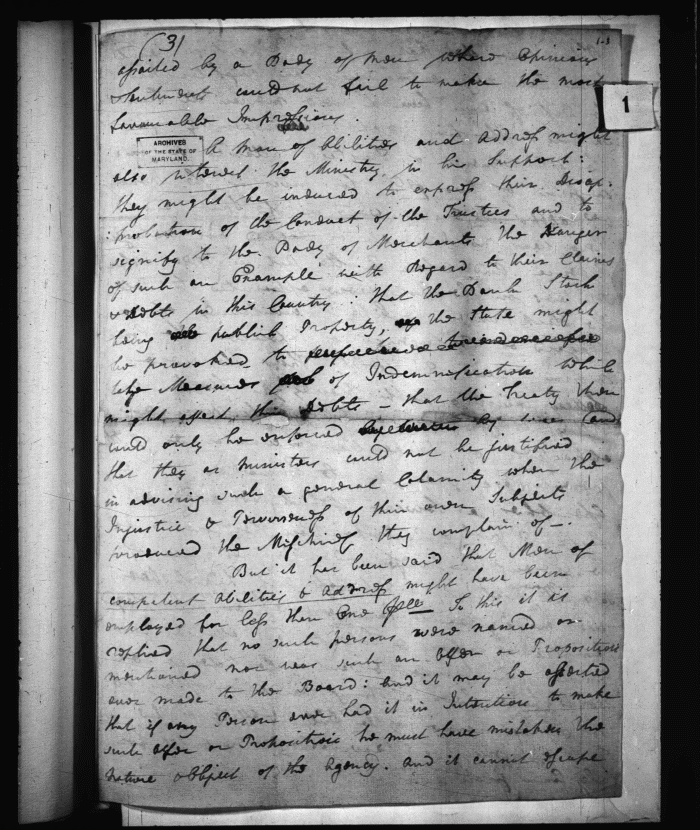 (3)
1-3
1
assisted by a Body of Men whose Opinions
& Sentiments could not fail to make the most
favourable Impressions.
ARCHIVES
OF THE STATE OF
MARYLAND.
A man of Abilities and Address might
also interest the Ministry in his Support:
they might be induced to express their Disap-
:probation of the Conduct of the Trustees and to
signify to the Body of Merchants the Danger
of such an Example with Regard to their Claims
& Debts in this Country: that the Bank Stock
being publick Property, the State might
be provoked to
like Measures of Indemnification which
might affect their Debts – that the Treaty then
could only be enforced by War and
that they as Ministers could not be justified
in advising such a general Calamity when the
Injustice & Perverseness of their own Subjects
produced the Mischiefs they complain of –.
But it has been said that Men of
competent Abilities & Address might have been
employed for less than One To this it is
replied that no such persons were named or
mentioned nor was such an Offer or Proposition
ever made to the Board: and it may be asserted
that if any Person ever had it in Intention to make
such offer or Proposition he must have mistaken the
nature & Object of the Agency. and it cannot escape